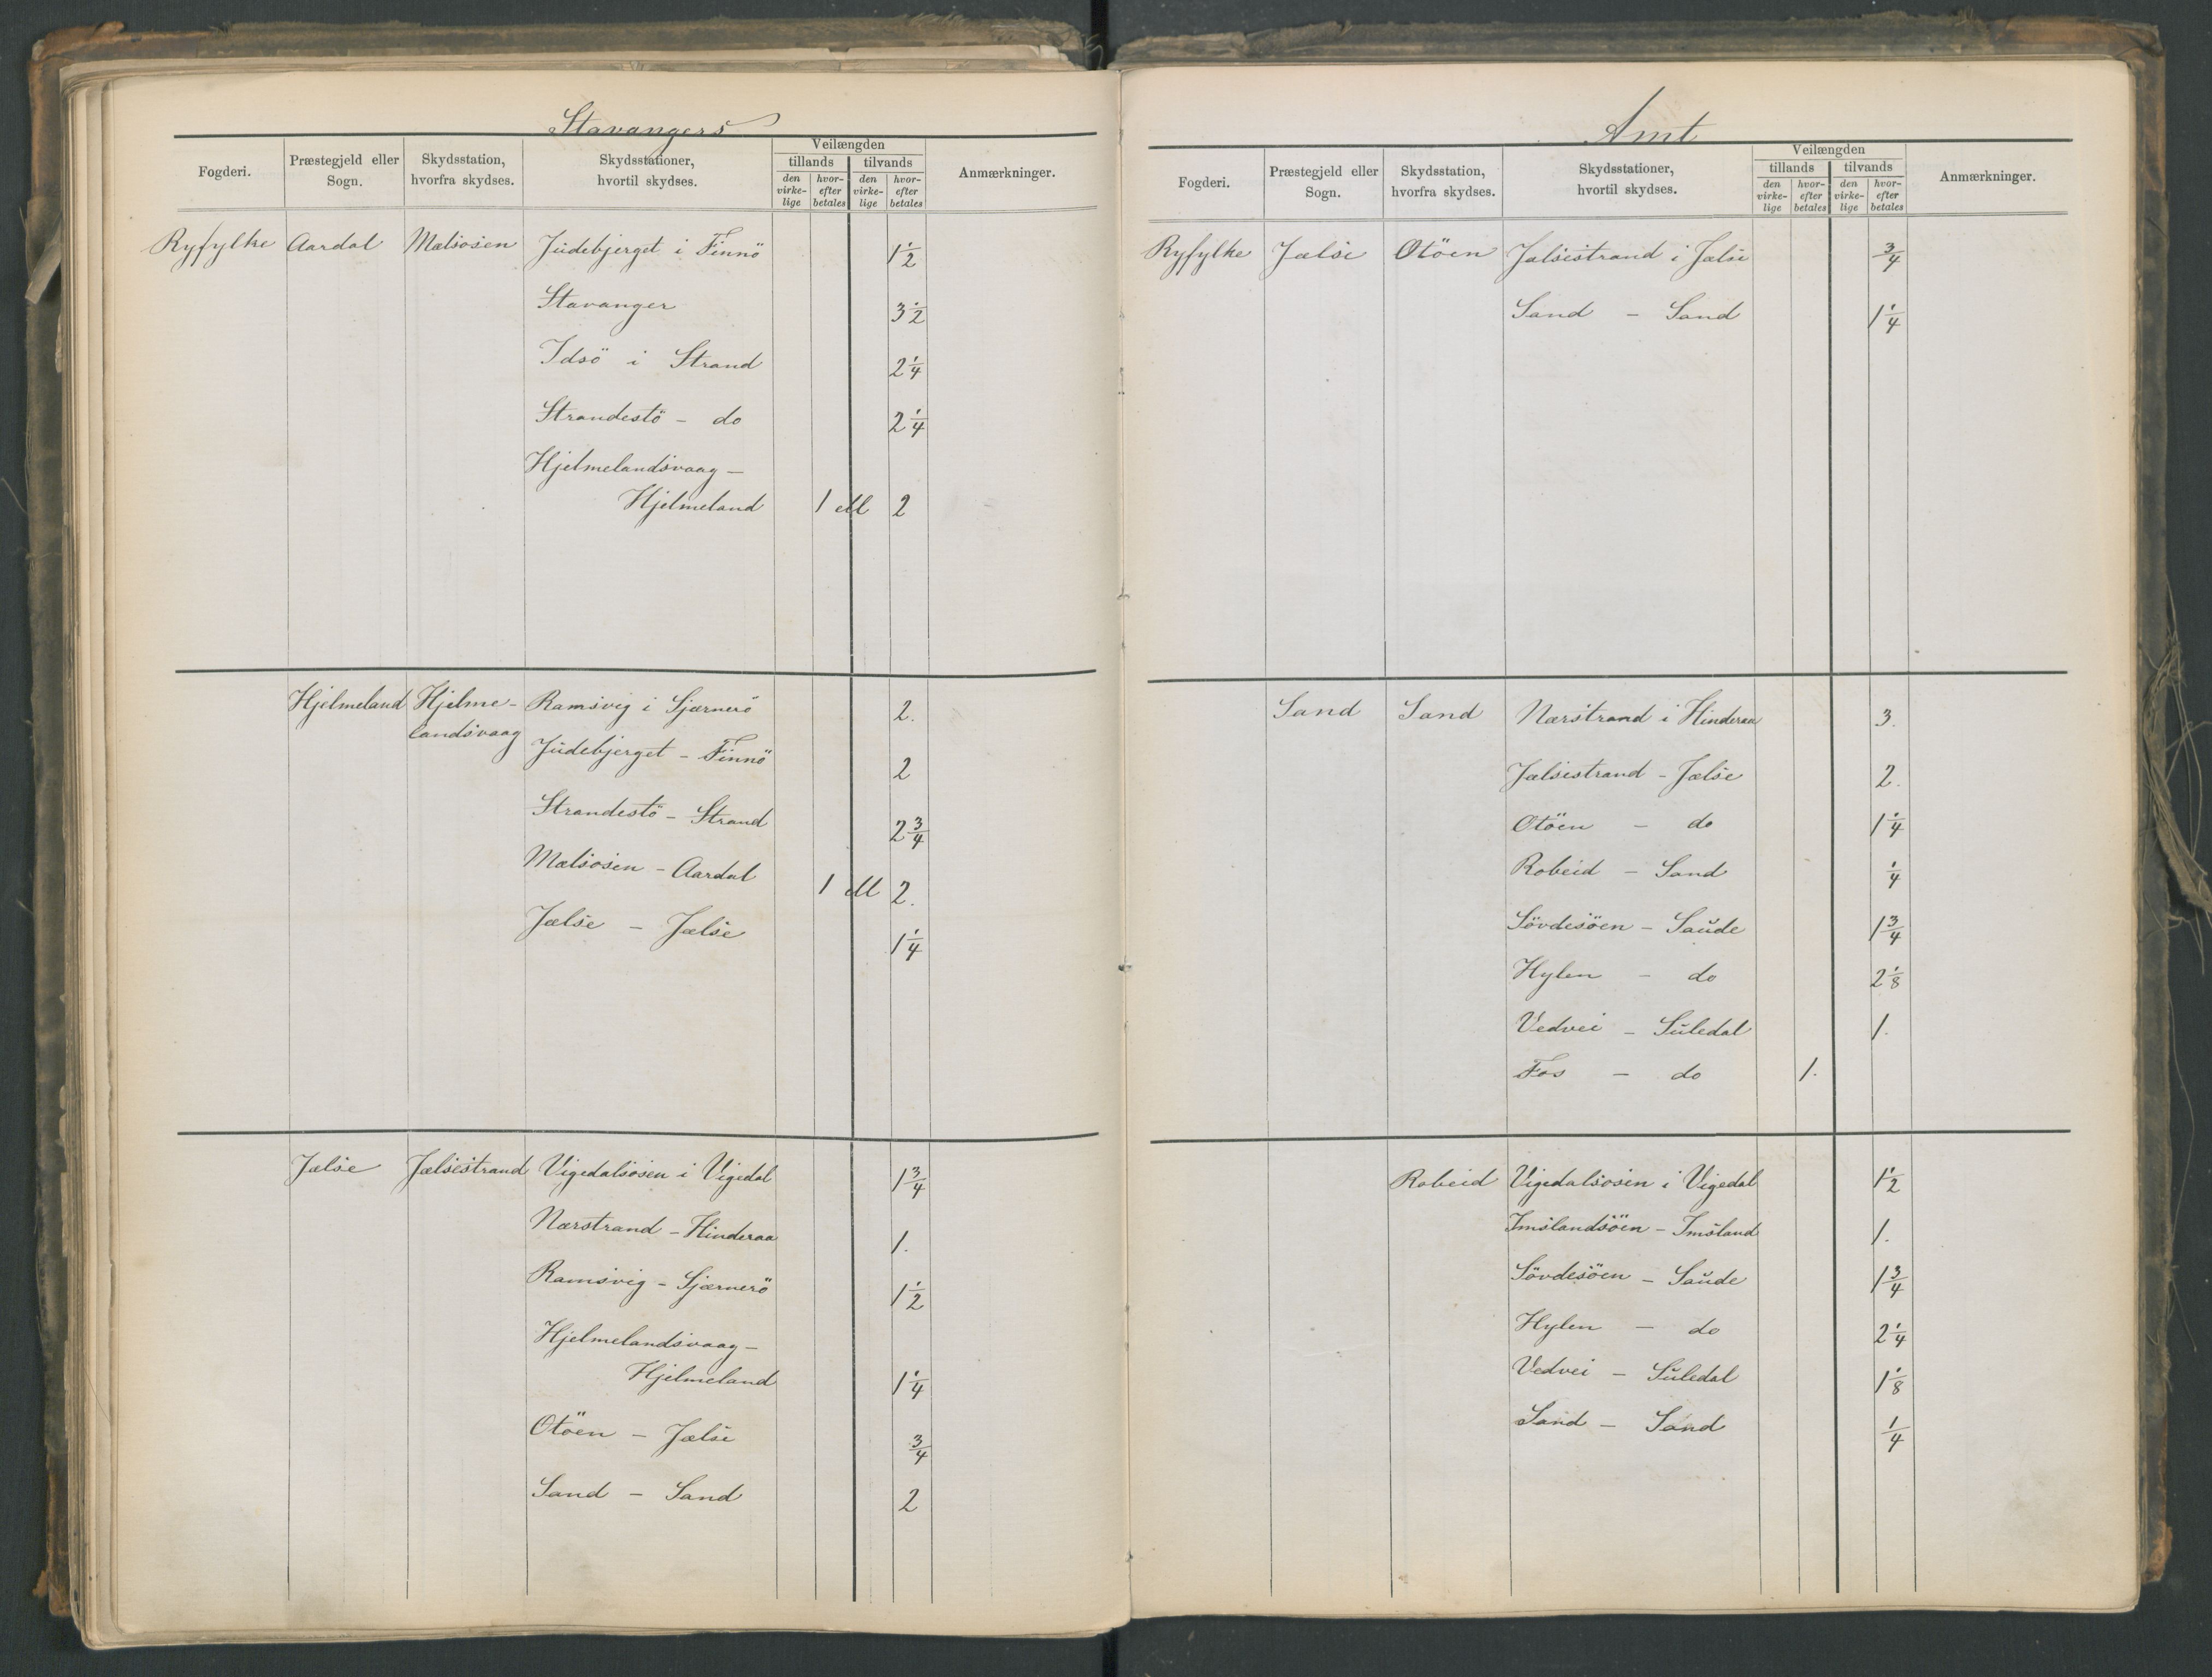 Stavangers
Fogderi.
Præstegjeld eller Sogn.
Skydsstation, hvorfra skydses.
Skydsstationer, hvortil skydses.
Veilængden
tillands
tilvands
den virke-lige
hvor-efter betales
den virke-lige
hvor-efter betales
Anmærkninger.
Ryfylke Aardal Mælsosen Judebjerget i Finnö 1 1/2
Stavanger 3 1/2
Idsö i Strand 2 1/4
Strandestö - do 2 1/4
Hjelmelandsvaag -
Hjelmeland 1 ell 2
Hjelmeland Hjelme- Ramsvig i Sjærnerö 2.
landsvaag
Judebjerget - Finnö 2
Strandestö - Strand 2 3/4
Mælsosen - Aardal 1 ell 2.
Jælse - Jælse 1 1/4
Jælse Jælsestrand Vigedalsosen i Vigedal 1 3/4
Nærstrand - Hinderaa 1.
Ramsvig - Sjærnerö 1 1/2
Hjelmelandsvaag -
Hjelmeland 1 1/4
Otöen - Jælse 3/4
Sand - Sand 2
Amt
Fogderi.
Præstegjeld eller Sogn.
Skydsstation, hvorfra skydses.
Skydsstationer, hvortil skydses.
Veilængden
tillands
tilvands
den virke-lige
hvor-efter betales
den virke-lige
hvor-efter betales
Anmærkninger.
Ryfylke Jælse Otöen Jælsestrand i Jælse 3/4
Sand - Sand 1 1/4
Sand Sand Nærstrand i Hinderaa 3.
Jælsestrand - Jælse 2.
Otöen - do 1 1/4
Robeid - Sand 1/4
Sövdesöen - Saude 1 3/4
Hylen - do 2 1/8
Vedvei - Suledal 1.
Fos - do 1.
Robeid Vigedalsosen i Vigedal 1 1/2
Imslandsöen - Imsland 1.
Sövdesöen - Saude 1 3/4
Hylen - do 2 1/4
Vedvei - Suledal 1 1/8
Sand - Sand 1/4